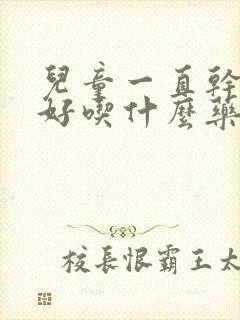 兒童一直幹
好喫什麼藥
校長恨霸王太